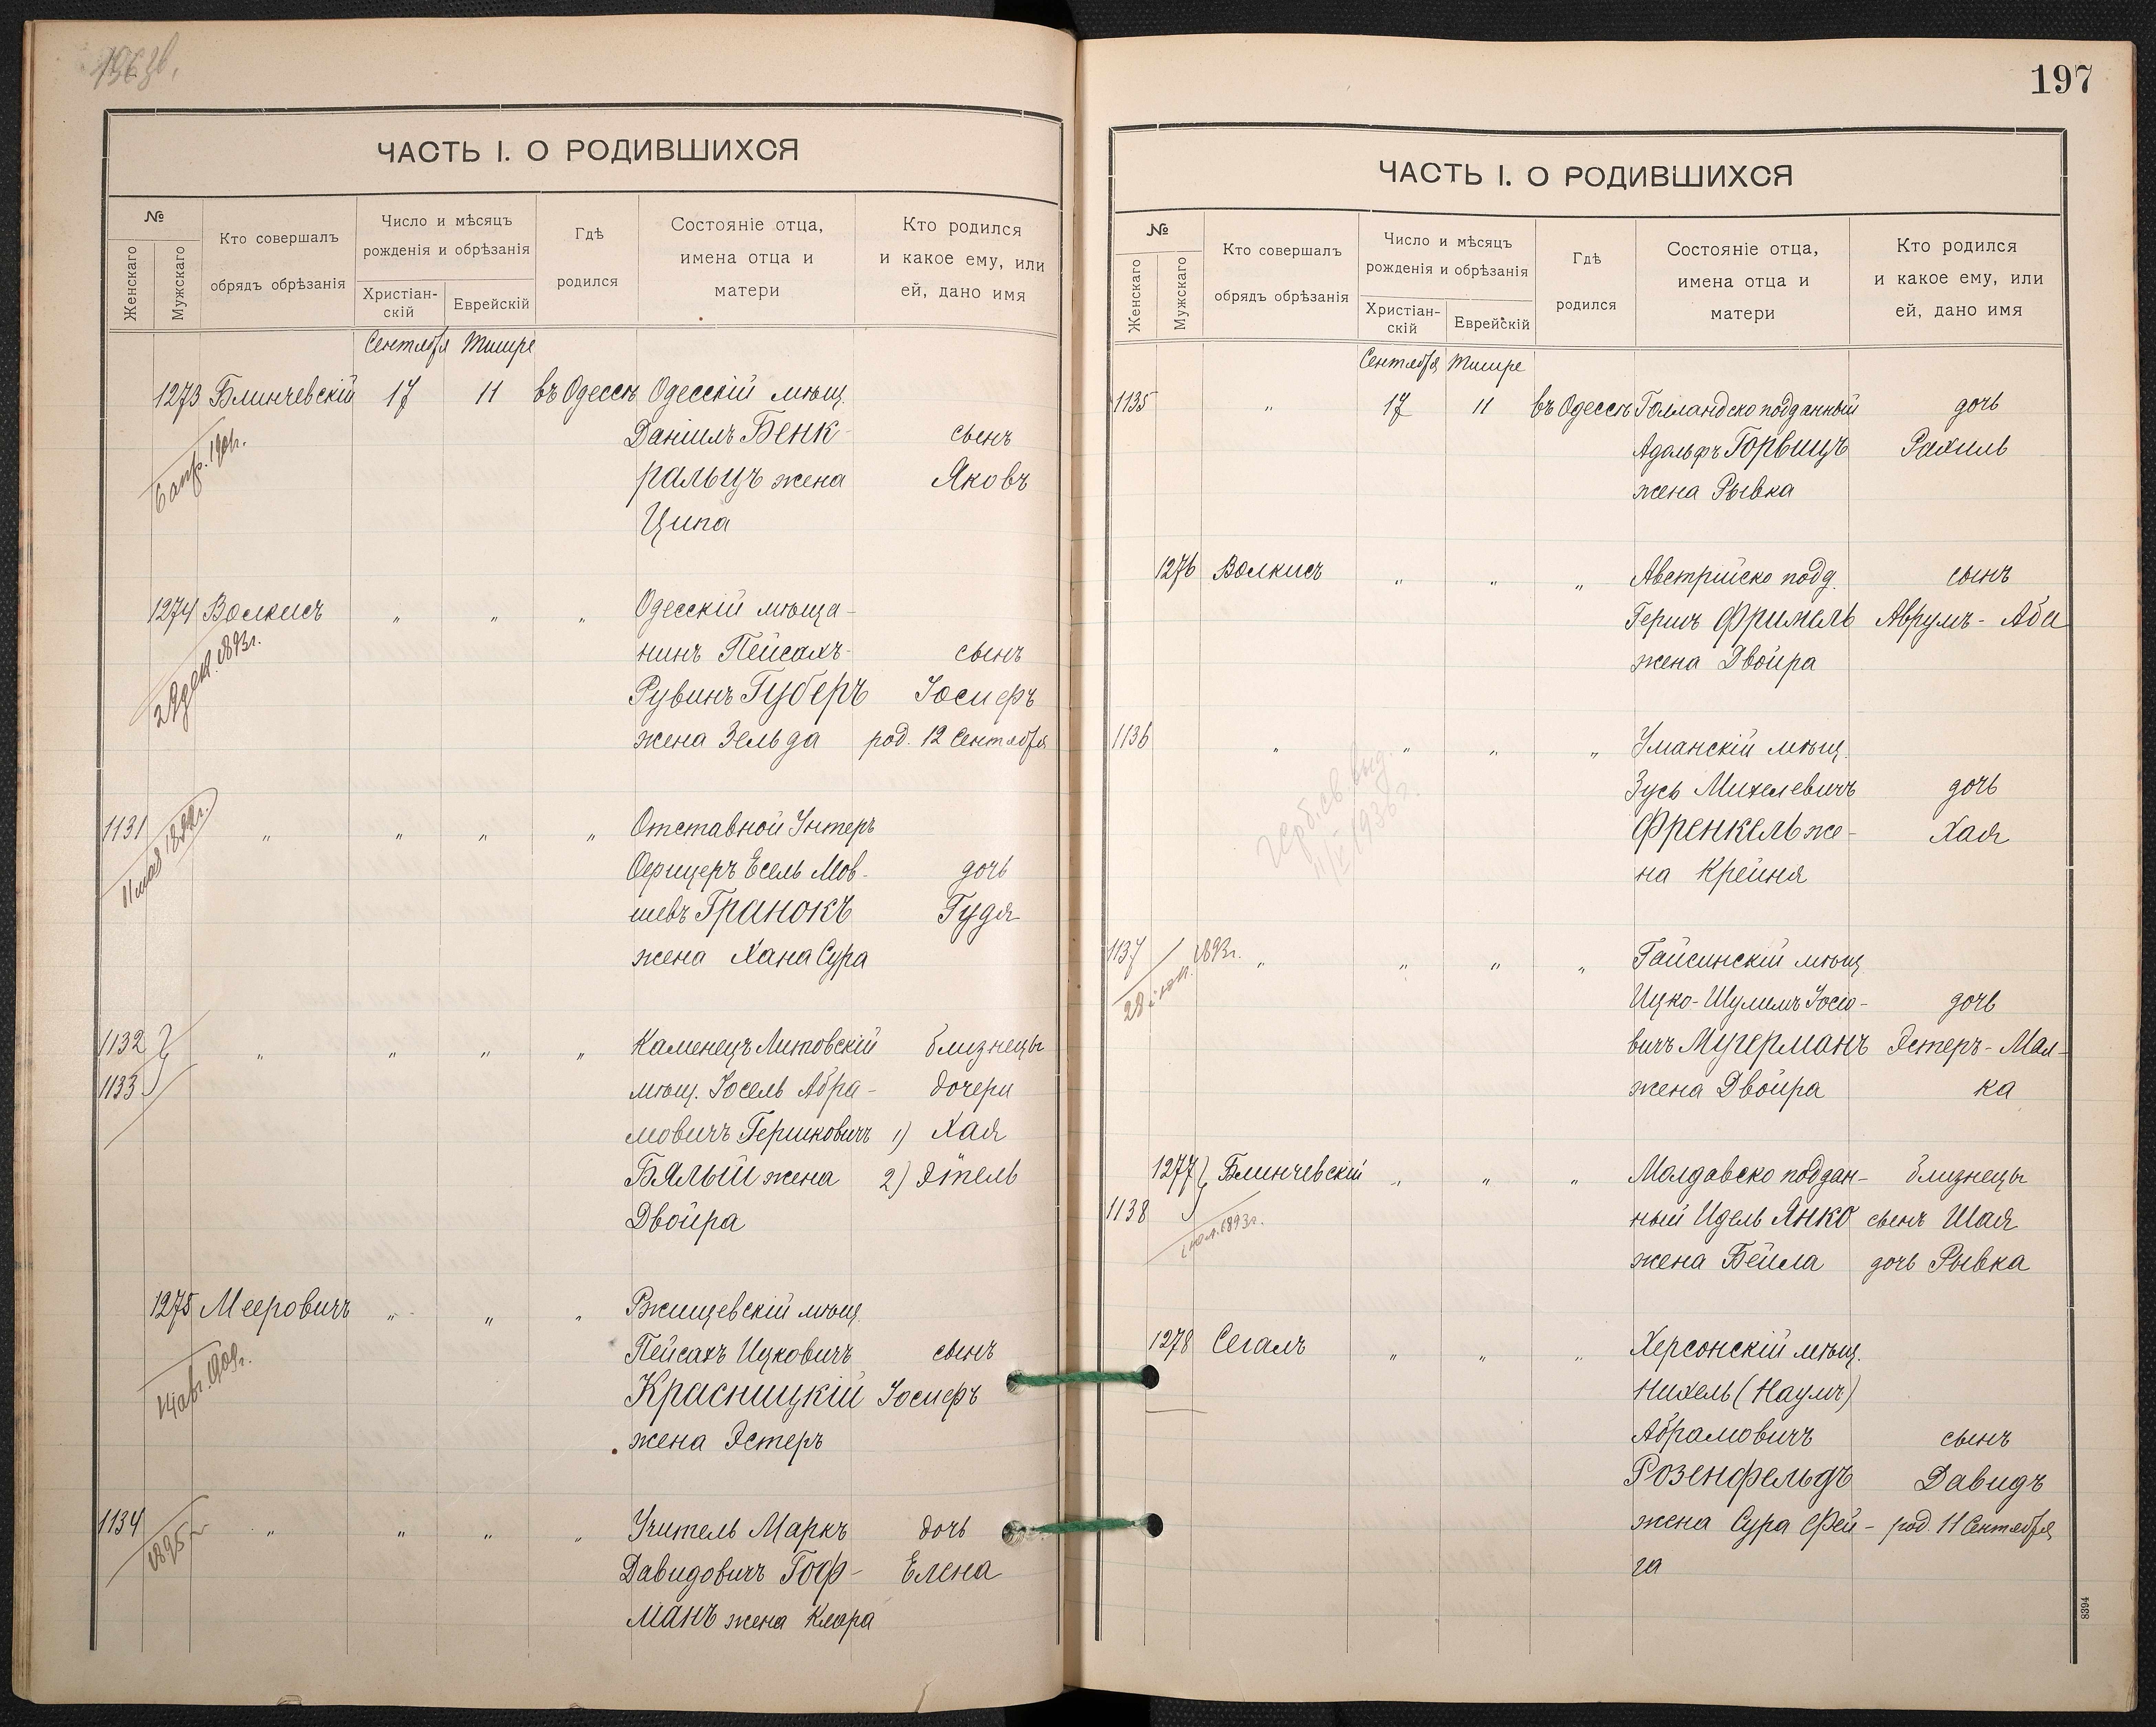 ЧАСТЬ I. О РОДИВШИХСЯ
№
Женскаго
Мужскаго
Кто совершалъ
обрядъ обрѣзанія
Число и мѣсяцъ
рожденія и обрѣзанія
Христіан-
скій
Еврейскій
Гдѣ
родился
Состояніе отца,
имена отца и
матери
Кто родился
и какое ему, или
ей, дано имя
Сентября Тишре
1273 Блинчевскій 17 11 въ Одессѣ Одесскій мѣщ.
Даніилъ Бенк- сынъ
ральцъ жена Яковъ
Ципа
6 апр. 1901г.
1274 Волкисъ " " " Одесскій мѣща-
нинъ Пейсахъ- сынъ
Рувинъ Губеръ Іосифъ
жена Зельда род. 12 Сентября
29 дек. 1893г.
1131 " " " " Отставной Унтеръ
Офицеръ Есель Мов- дочь
шевъ Гранокъ Гудя
жена Хана Сура
11 мая
1132 " " " " Каменецъ Литовскій близнецы
1133 мѣщ. Іосель Абра- дочери
мовичъ Гершковичъ 1) Хая
Бялый жена 2) Этель
Двойра
1275 Мееровичъ " " " Ржищевскій мѣщ.
Пейсахъ Ицковичъ сынъ
Красницкій Іосифъ
жена Эстеръ
14 авг. 1909г.
1134 " " " " Учитель Маркъ дочь
Давидовичъ Гоф- Елена
манъ жена Клара
1895 г
197
ЧАСТЬ I. О РОДИВШИХСЯ
№
Женскаго
Мужскаго
Кто совершалъ
обрядъ обрѣзанія
Число и мѣсяцъ
рожденія и обрѣзанія
Христіан-
скій
Еврейскій
Гдѣ
родился
Состояніе отца,
имена отца и
матери
Кто родился
и какое ему, или
ей, дано имя
Сентября Тишре
1135 " 17 11 въ Одессѣ Голландско подданный дочь
Адольфъ Горвицъ Рахиль
жена Рывка
1276 Волкисъ " " " Австрійско подд. сынъ
Гершъ Фримель Аврумъ-Аба
жена Двойра
1136 " " " " Уманскій мѣщ.
Зусь Михелевичъ дочь
Френкель же- Хая
на Крейня
св. выд.
1936 г.
1137 " " " " Гайсинскій мѣщ.
Ицко-Шулимъ Іосіо- дочь
вичъ Мучерманъ Эстеръ-Мал-
жена Двойра ка
28 1893г.
1277 Блинчевскій " " " Молдавско поддан- близнецы
1138 ный Идель Янко сынъ Шая
жена Бейла дочь Рывка
1893г.
1278 Сегалъ " " " Херсонскій мѣщ.
Нихель (Наумъ)
Абрамовичъ сынъ
Розенфельдъ Давидъ
жена Сура Фей- род. 11 Сентября
га
8394